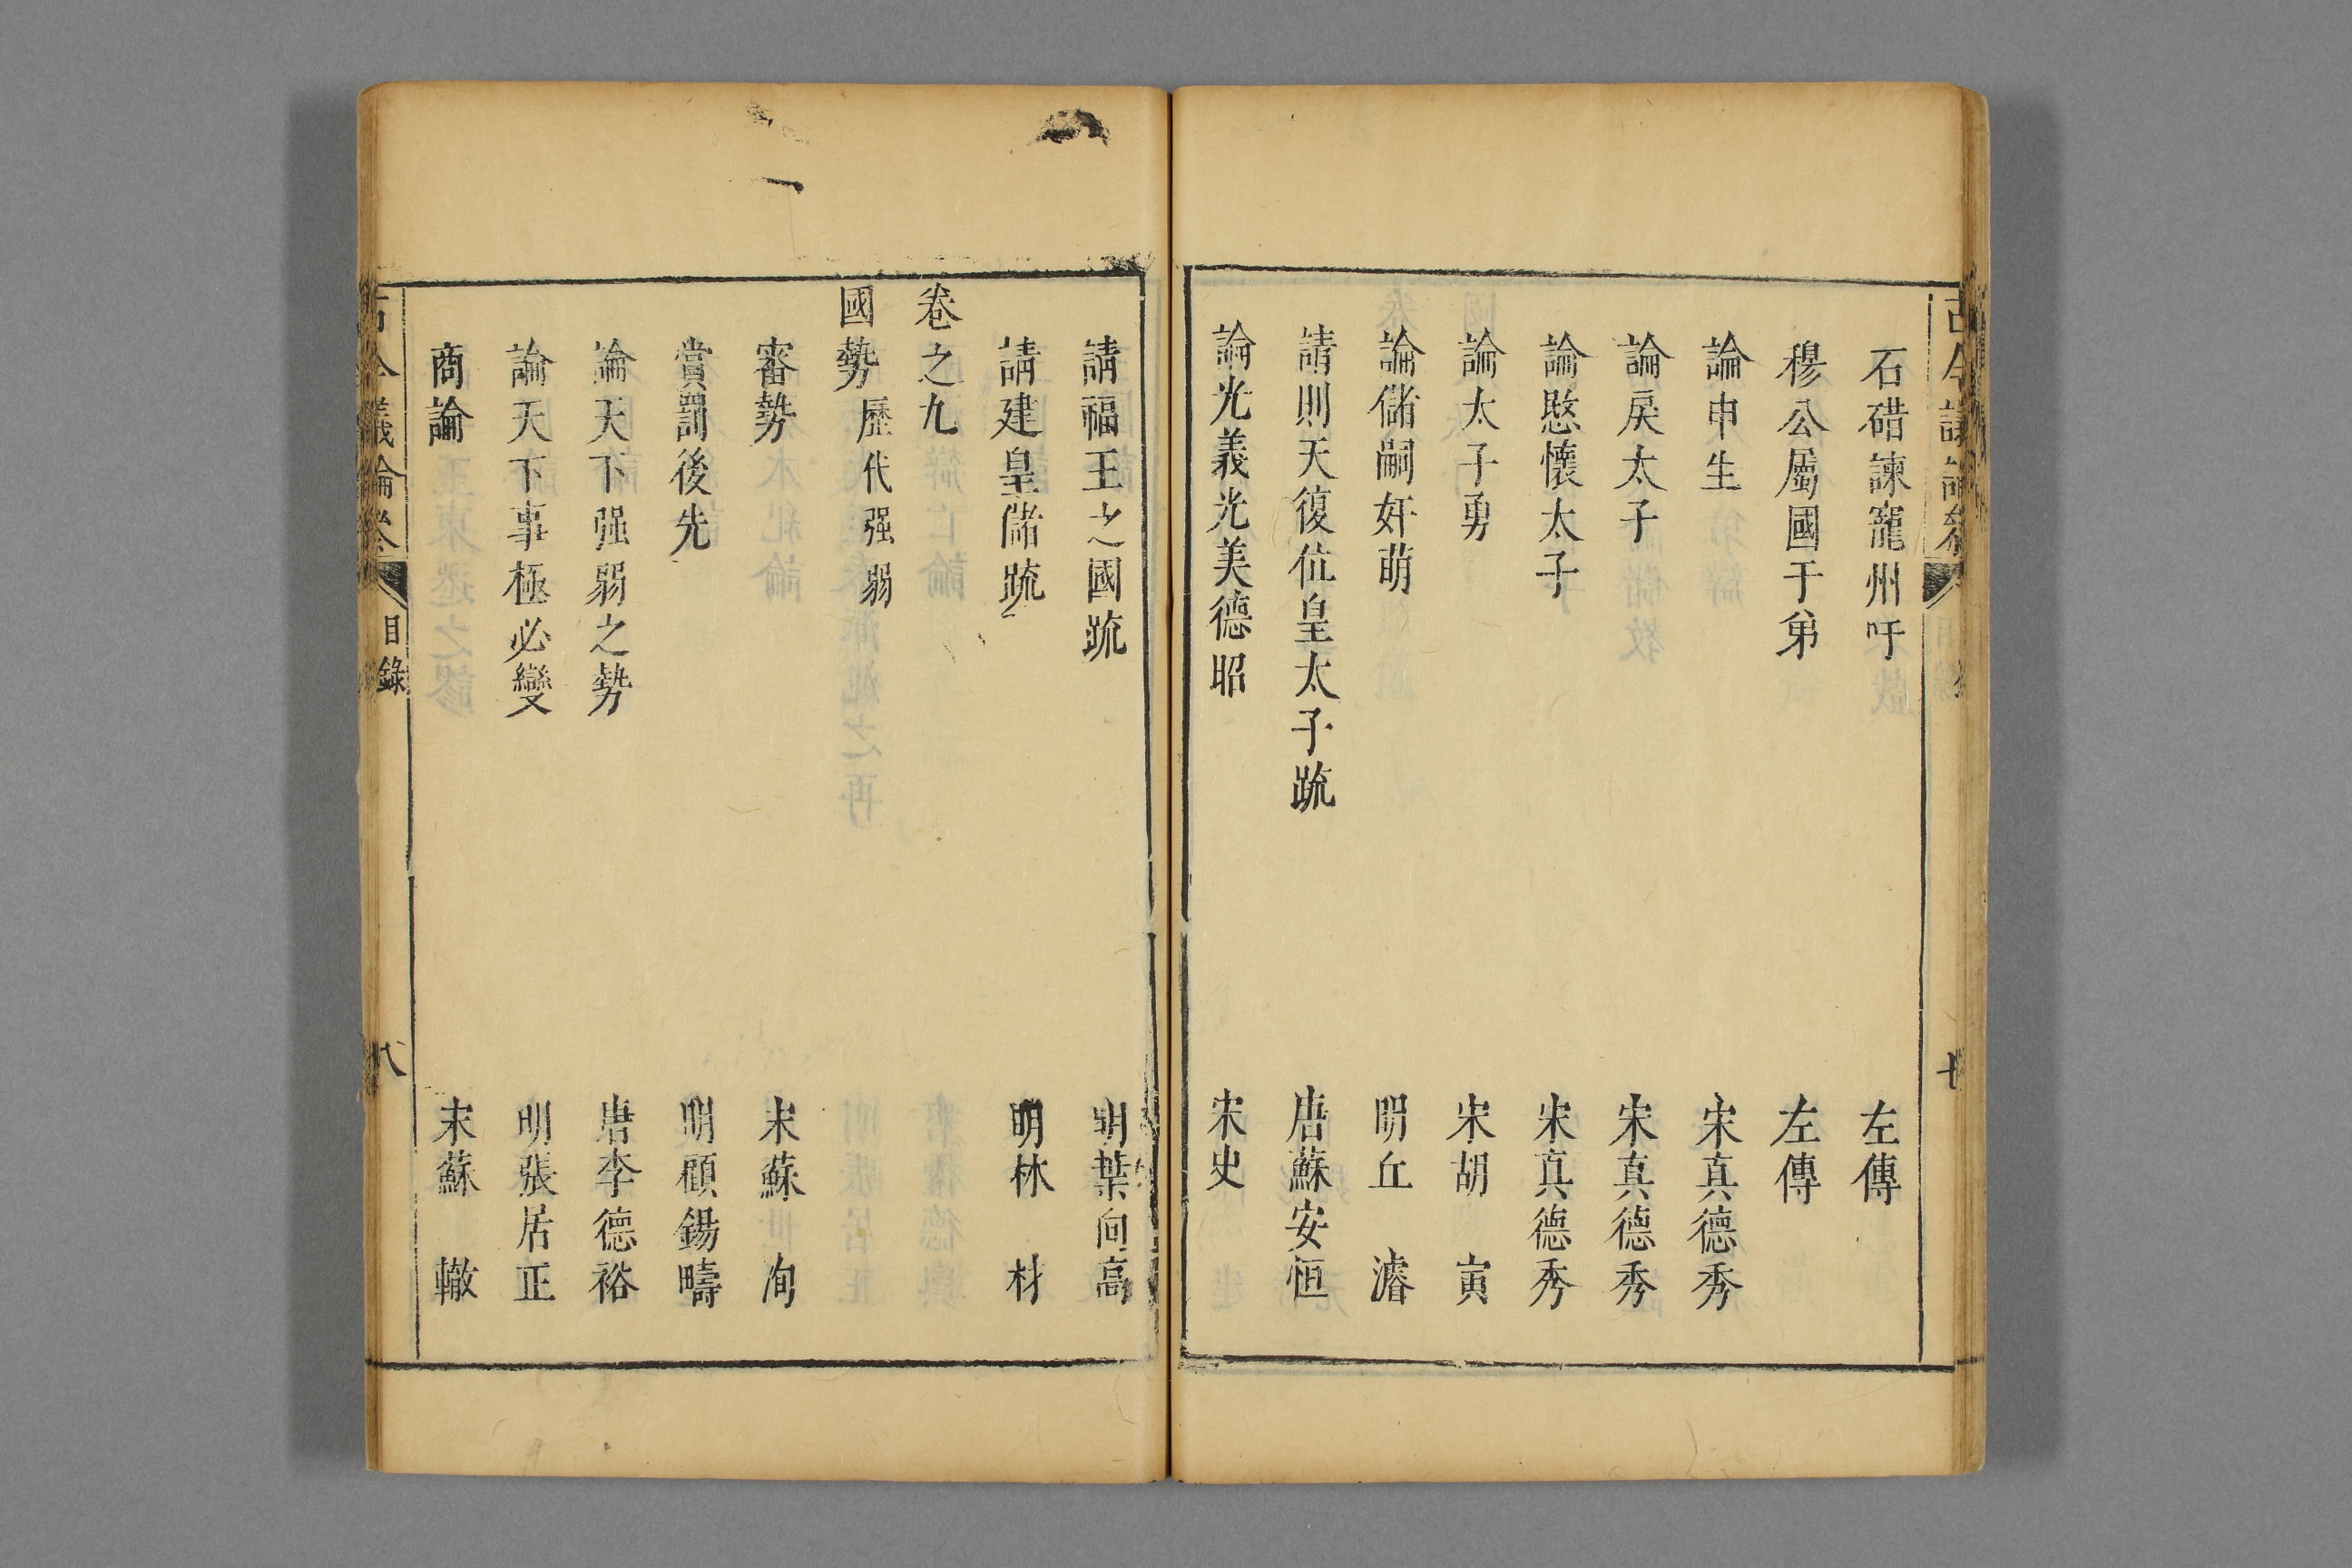 石碏諫寵州吁 左傳
穆公屬國于弟 左傳
論申生 宋真德秀
論戾太子 宋真德秀
論愍懷太子 宋真德秀
論太子勇 宋胡寅
論儲嗣奸萌 明丘濬
請則天復位皇太子疏 唐蘇安恒
論光義光美德昭 宋史
請福王之國疏 明葉向高
請建皇儲疏 明林材
卷之九
國勢 歷代强弱
審勢 宋蘇洵
賞罰後先 明顧錫疇
論天下强弱之勢 唐李德裕
論天下事極必變 明張居正
商論 宋蘇轍
古今議論參 目錄 八